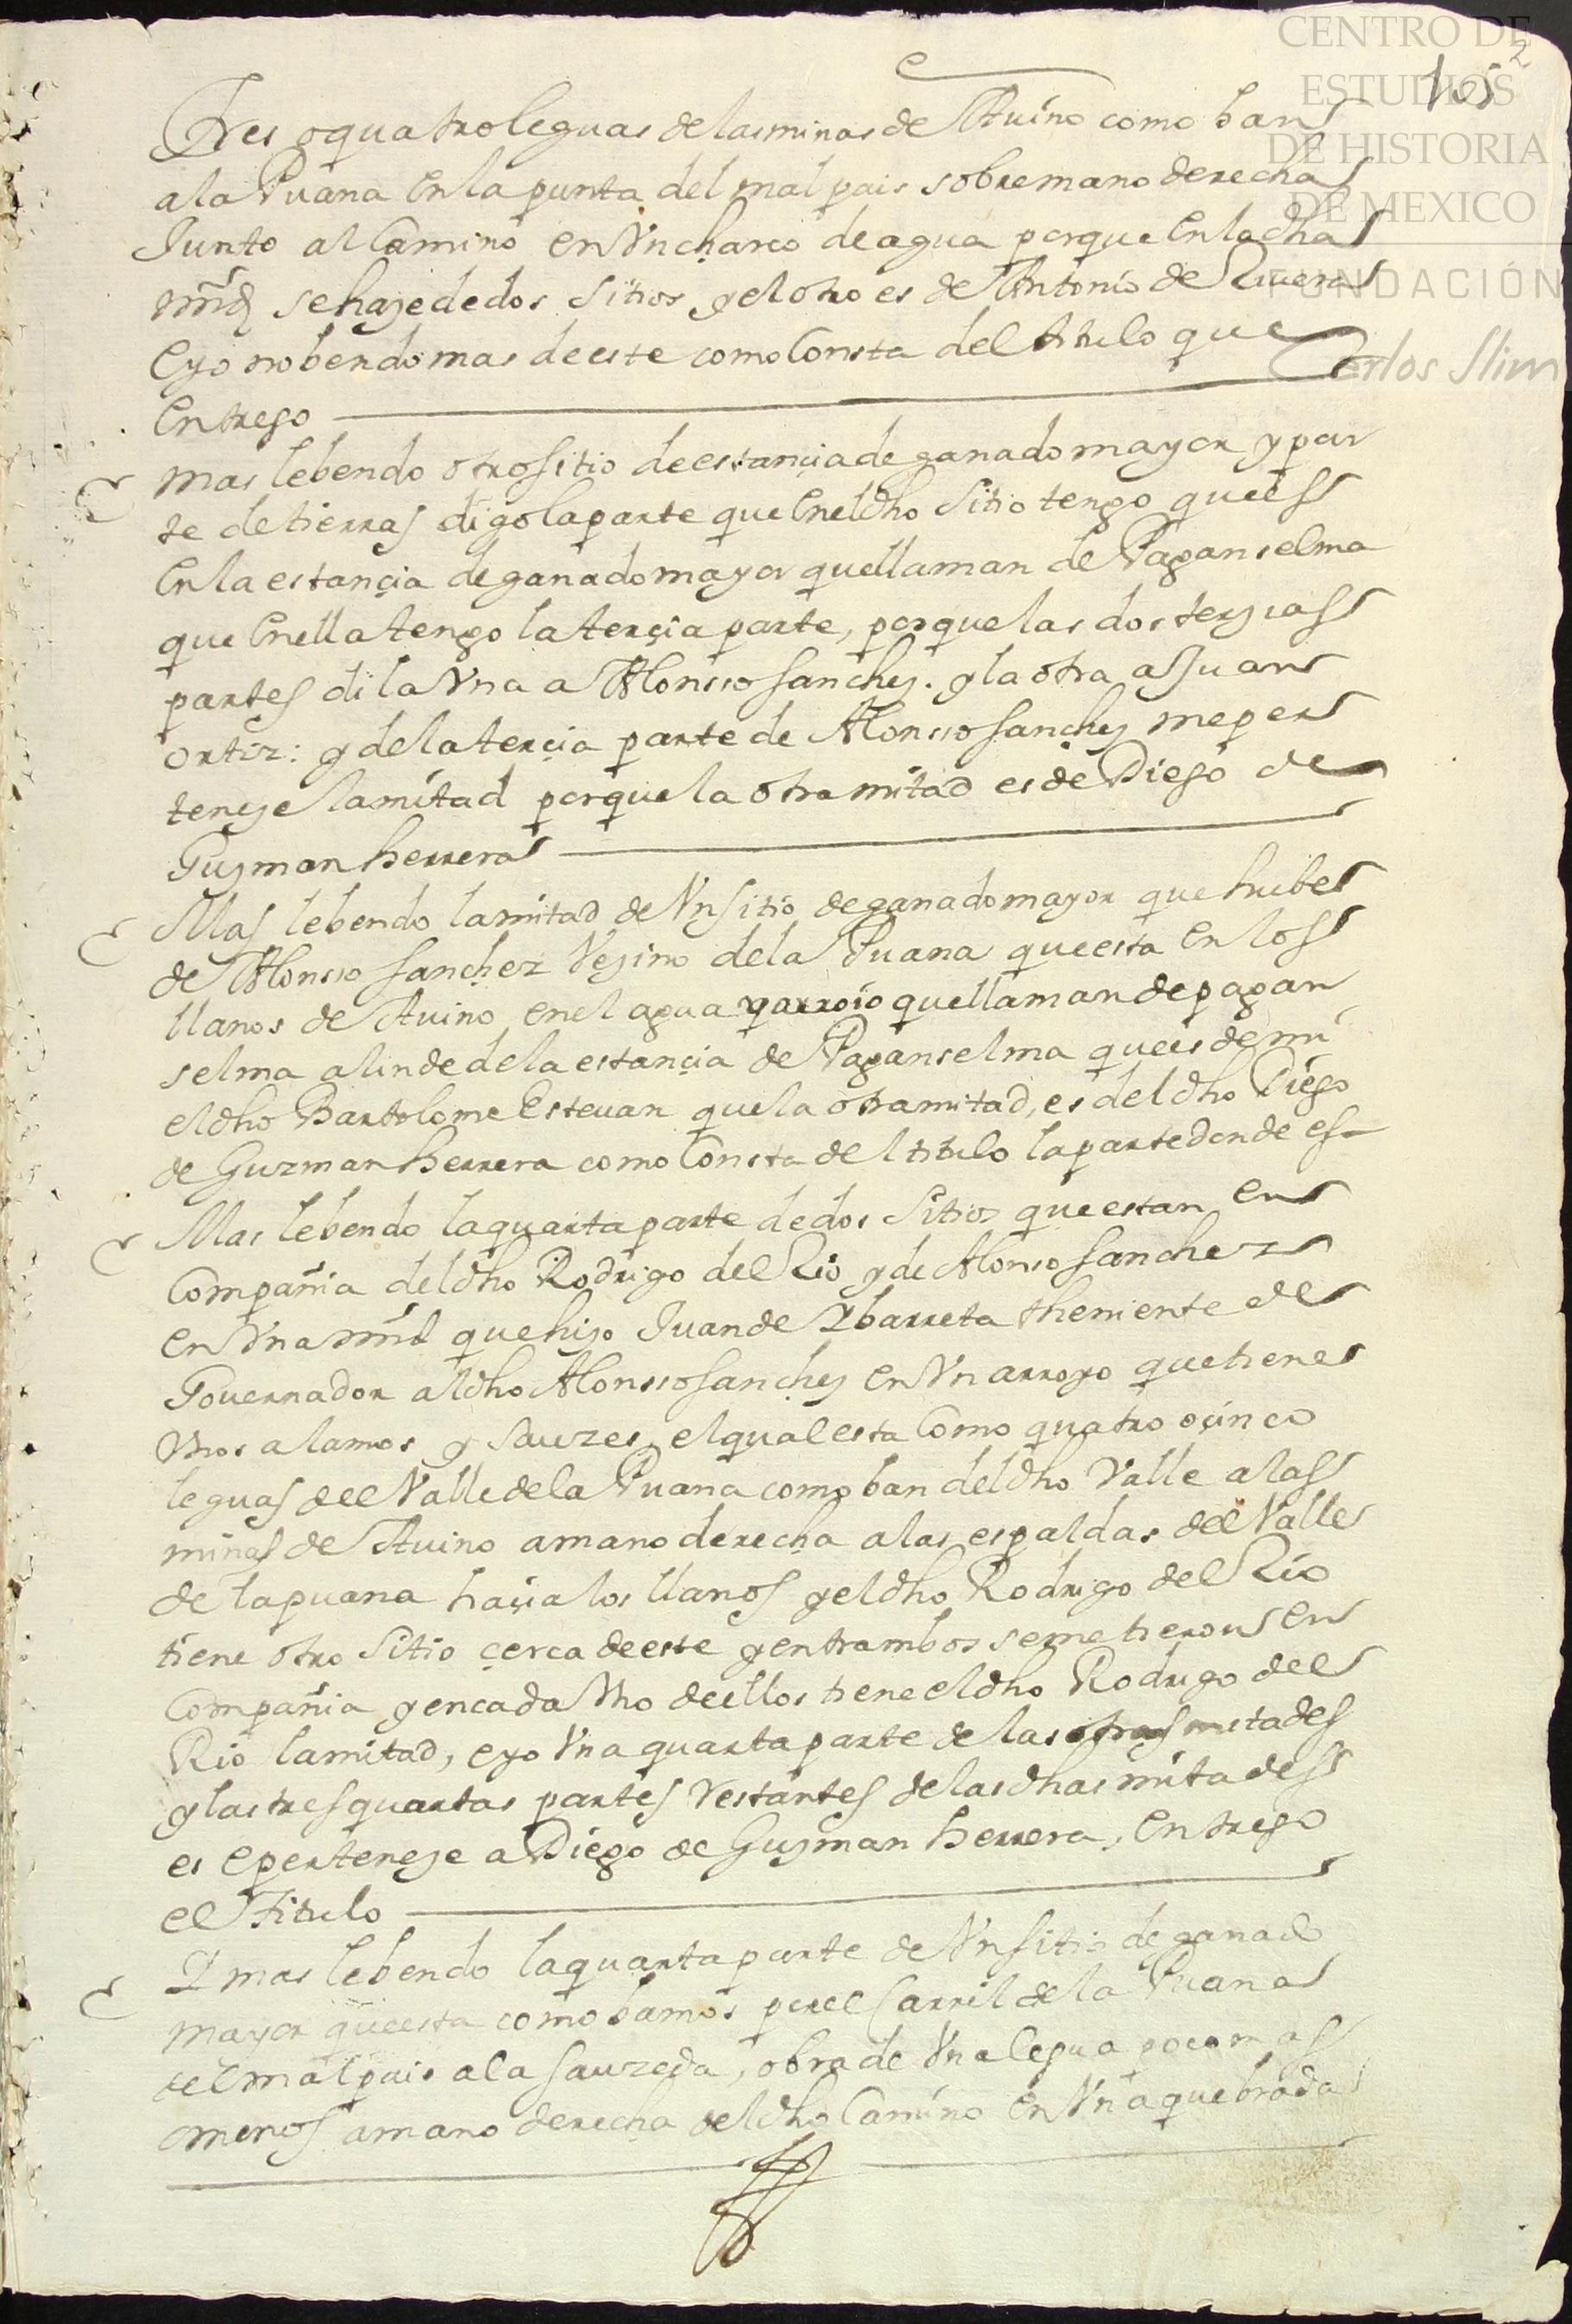 CENTRO DE
ESTUDIOS
DE HISTORIA
DE MEXICO
FUNDACIÓN
Carlos Slim
2
Tres o quatro leguas de las minas de Auino como ban
a la Puana en la punta del mal pais sobre mano derecha
Junto al Camino en Vn charco de agua porque en la dha
mrd se haze de dos sitios y el otro es de Antonio de Riuera
e yo no bendo mas de este como Consta del titulo que
entrego
mas le bendo otro sitio de estançia de ganado mayor y par
te de tierras digo la parte que en el dho sitio tengo que es
en la estançia de ganado mayor que llaman de Paganselma
que en ella tengo la terçia parte, porque las dos terzias
partes di la Vna a Alonsso sanchez. y la otra a Juan
ortiz: y de la terçia parte de Alonsso sanchez me per
teneze la mitad porque la otra mitad es de Diego de
Guzman herrera
Mas le bendo la mitad de Vn sitio de ganado mayor que hube
de Alonsso sanchez Vezino de la Puana que esta en los
llanos de Auino en el agua y arroio que llaman de pagan
selma a linde de la estançia de Paganselma que es de mi
el dho Bartolome Esteuan que la otra mitad, es del dho Diego
de Guzman herrera como Consta del titulo la parte donde es
Mas le bendo la quarta parte de dos sitios que estan en
Compañia del dho Rodrigo del Rio y de Alonso sanchez
en Vna mrd que hizo Juan de Ybarreta theniente de
Gouernador al dho Alonsso sanchez en Vn arroyo que tiene
Vnos alamos y sauzes, el qual esta Como quatro o çinco
leguas del Valle de la Puana como ban del dho Valle a las
minas de Auino a mano derecha a las espaldas del Valle
de la puana haçia los llanos y el dho Rodrigo del Rio
tiene otro sitio çerca de este y entrambos se metieron en
Compañia y en cada Vno de ellos tiene el dho Rodrigo del
Rio la mitad, e yo Vna quarta parte de las otras mitades
y las tres quartas partes restantes de las dhas mitades
es e perteneze a Diego de Guzman herrera, entrego
el Titulo
Y mas le bendo la quarta parte de Vn sitio de ganado
mayor que esta como bamos por el Carril de la Puana
del mal pais a la sauzeda, obra de Vna legua poco mas
o menos a mano derecha del dho Camino en Vna quebrada